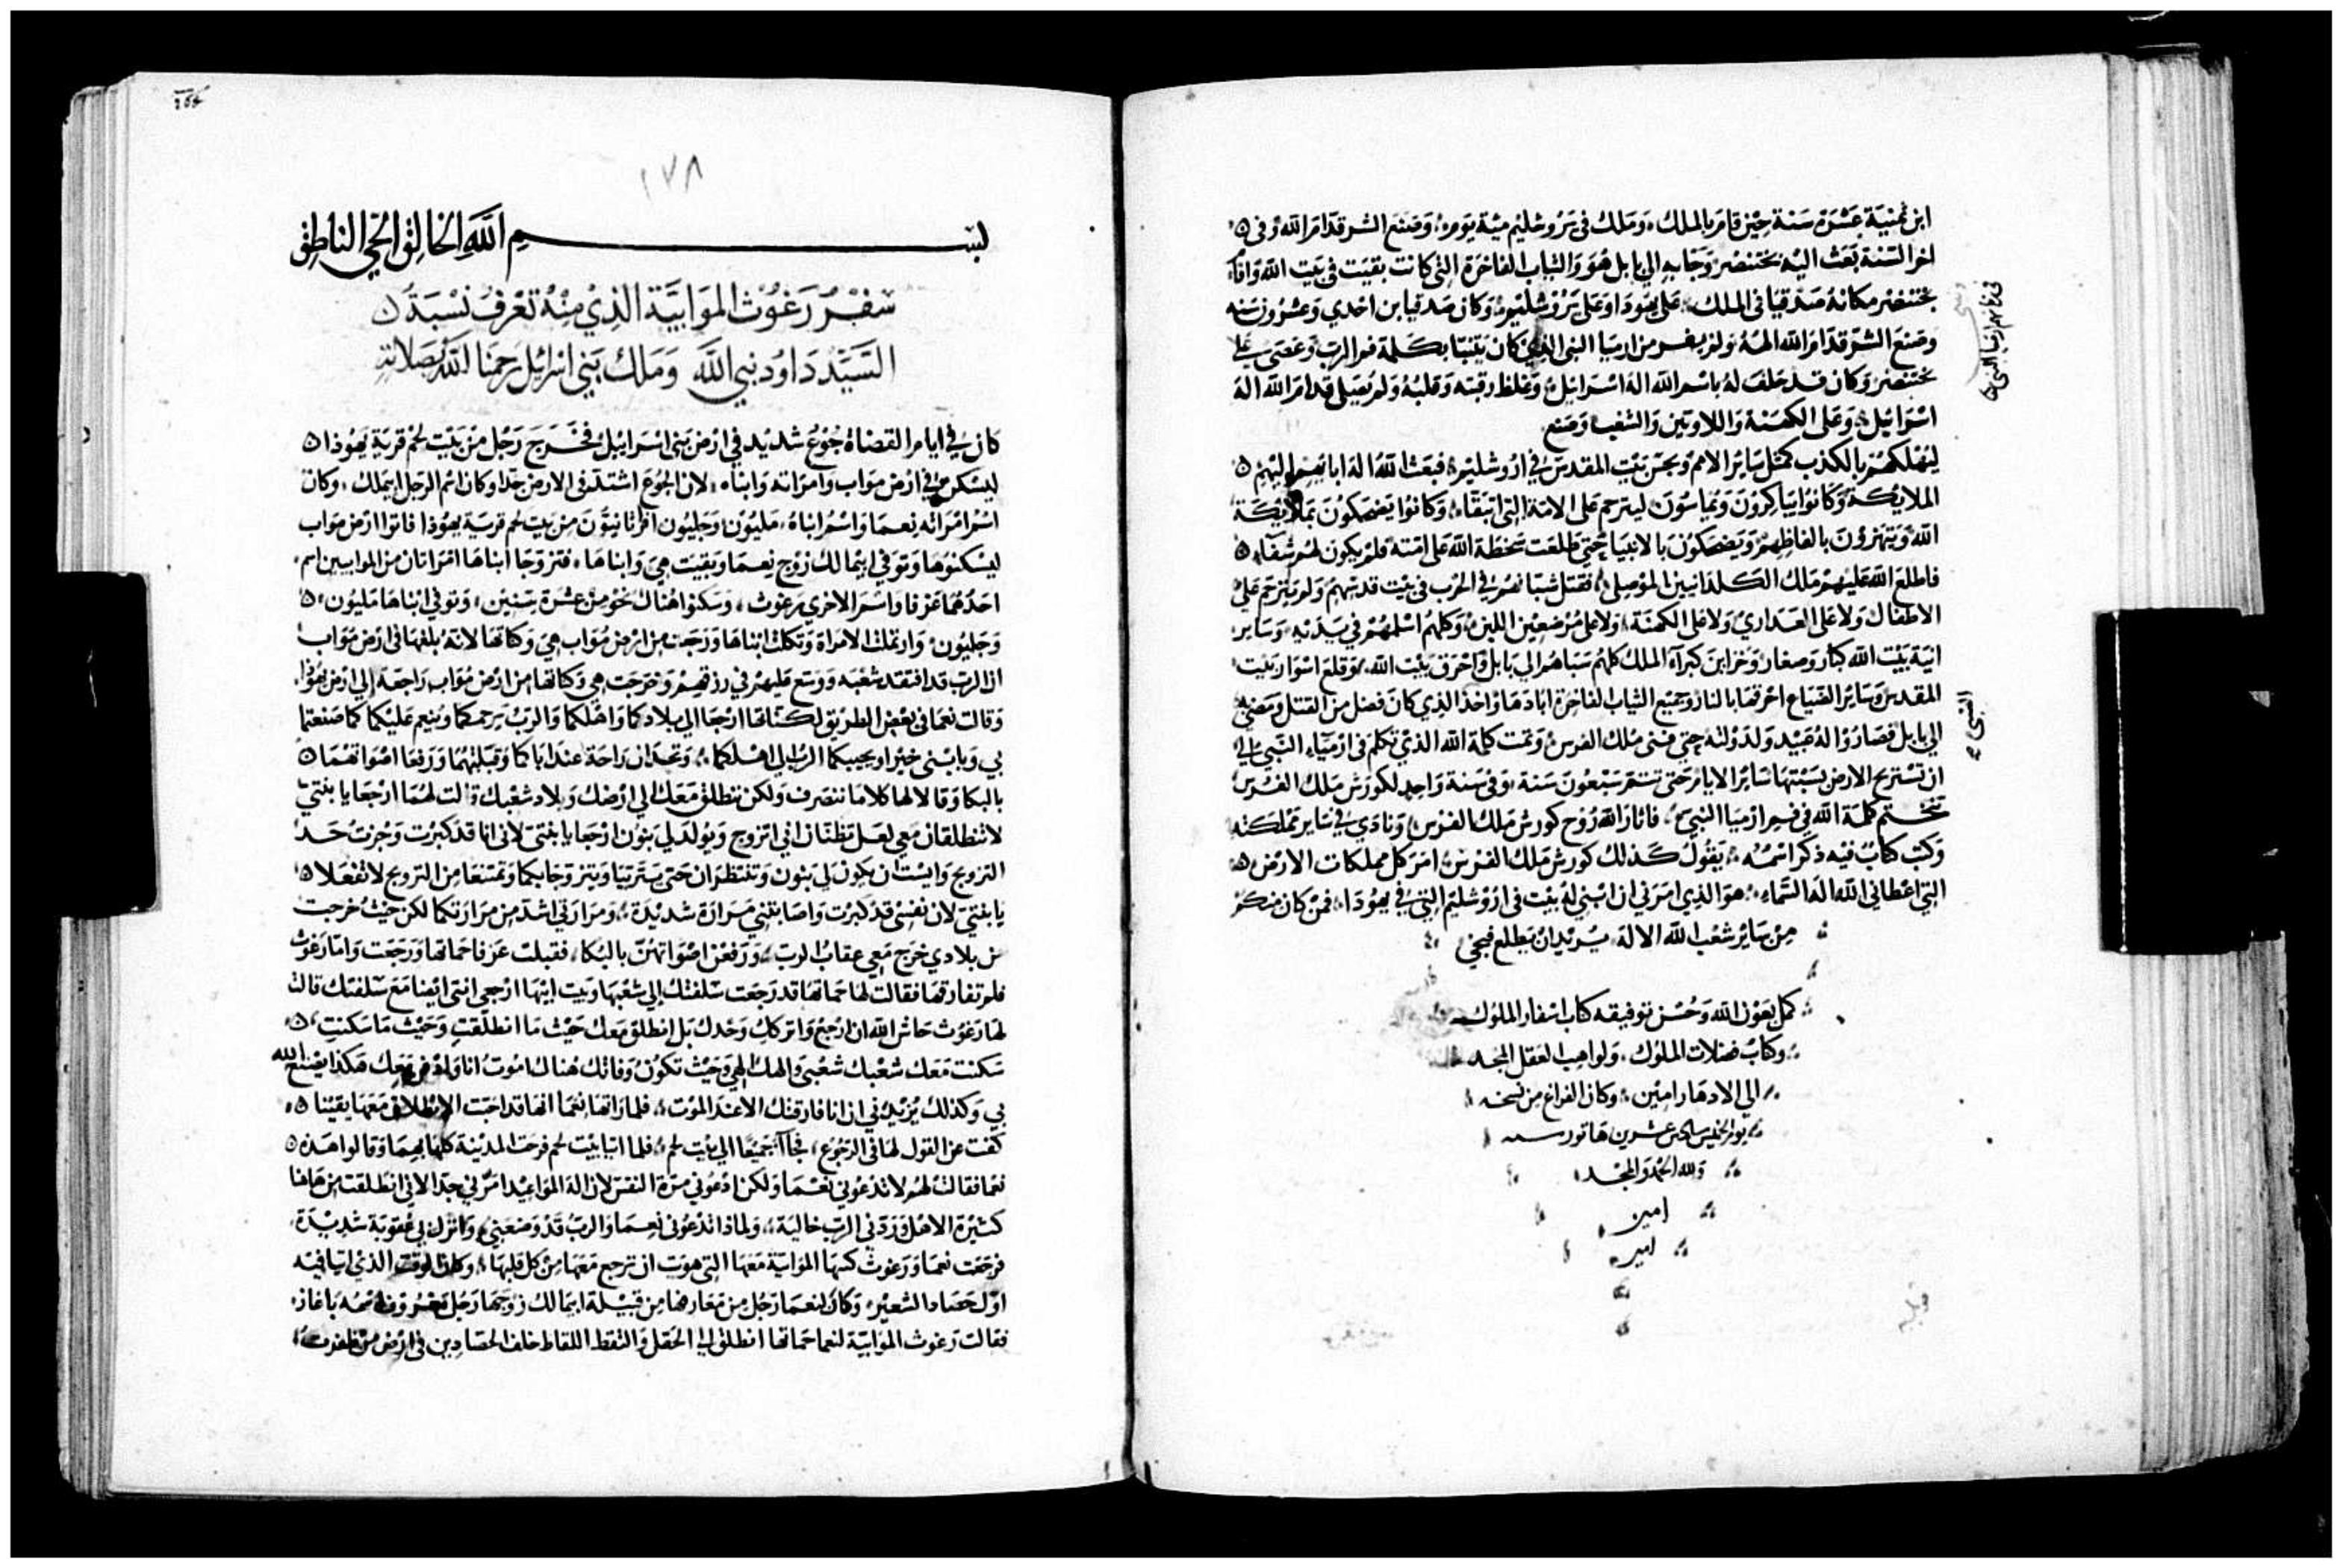 ابن ثمنية عشرة سنة حين قام بالملك، وملك في يروشليم مية يوم، وصنع الشر قدام الله وفي
اخر السنة بعث اليه بختنصر وجا به الي بابل هو والثياب الفاخرة التي كانت بقيت في بيت الله واقام
بختنصر مكانه صدقيا في الملك علي يهودا وعلي يروشليم وكان صدقيا ابن احدي وعشرون سنه
وصنع الشر قدام الله الهه ولم يفر من ارميا النبي الذي كان يتنبا بكلمة فم الرب وعصى علي
بختنصر وكان قد حلف له باسم الله اله اسرائيل وغلظ رقبته وقلبه ولم يصلي قدام الله اله
اسرائيل وعلى الكهنة واللاويين والشعب وصنع
ليهلكهم بالكذب كمثل ساير الامم ونجس بيت المقدس في اروشليم فبعث الله اله ابايهم اليهم
الملايكة وكانوا يباكرون ويماسون ليترحم على الامة التي اتبقاء وكانوا يضحكون بملايكة
الله ويتهزؤن بالفاظهم ويضحكون بالانبياء حتى طلعت سخطة الله على امته فلم يكون لهم شفاء
فاطلع الله عليهم ملك الكلدانيين الموصلي فقتل شبانهم في الحرب في بيت قدسهم ولم يترحم علي
الاطفال ولا على العداري ولا على الكهنة ولا على مرضعين اللبن وكلهم اسلمهم في يديه وساير
انية بيت الله كبار وصغار وخزاين كبراء الملك كلهم سباهم الي بابل واحرق بيت الله وقلع اسوار بيت
المقدس وساير الضياع احرقها بالنار وجميع الثياب الفاخرة ابادها واخذ الذي كان فضل من القتل ومضى به
الي بابل فصاروا له عبيد ولدولته حتى فنى ملك الفرس وتمت كلمة الله الذي تكلم في ارمياء النبي الي
ان تستريح الارض بسبتها ساير الايام حتى تستتم سبعون سنة وفي سنة واحد لكورش ملك الفرس
تختم كلمة الله في فم ارميا النبي فاثار الله روح كورش ملك الفرس ونادي في ساير مملكته
وكتب كتاب فيه ذكر اسمه يقول كذلك كورش ملك الفرس امر كل مملكات الارض
التي اعطاني الله اله السماء هو الذي امرني ان ابني له بيت في اروشليم التي في يهودا فمن كان منكم
من ساير شعب الله الاله يريد ان يطلع فيجي
كمل بعون الله وحسن توفيقه كتاب اسفار الملوك
وكتاب فضلات الملوك ولواهب العقل المجد
الي الادهار امين وكان الفراغ من نسخه
يوم الخميس سادس عشرين هاتور سنه
ولله الحمد والمجد
امين
امين
١٧٨
بسم الله الخالق الحي الناطق
سفر رغوث الموابية الذي منه تعرف نسبة
السيد داود نبي الله وملك بني اسرائيل رحمنا الله بصلاته
كان في ايام القضاة جوع شديد في ارض بني اسرائيل فخرج رجل من بيت لحم قرية يهوذا
ليسكن في ارض مواب وامراته وابناه لان الجوع اشتد في الارض جدا وكان اسم الرجل ايملك وكان
اسم امراته نعما واسم ابناه مليون وجليون افراثانيون من بيت لحم قرية يهوذا فاتوا ارض مواب
ليسكنوها وتوفي ايمالك زوج نعما وبقيت هي وابناها فتزوجا ابناها امراتان من الموابيين اسم
احدهما عزفا واسم الاخري رغوث وسكنوا هناك نحو من عشرة سنين وتوفي ابناها مليون
وجليون وارتملت الامراة وتكلت ابناها ورجعت من ارض مواب هي وكناتها لانه بلغها في ارض مواب
ان الرب قد افتقد شعبه ووسع عليهم في رزقهم وخرجت هي وكناتها من ارض مواب راجعة الي ارض يهوذا
وقالت نعما في بعض الطريق لكناتها ارجعا الي بلادكما واهلكما والرب يرحمكما وينعم عليكما كما صنعتما
بي وبابني خيرا ويجيبكما الرب الي اهلكما وتجدان راحة عند اباكما وقبلتهما ورفعا اصواتهما
بالبكا وقالا لها كلاما ننصرف ولكن ننطلق معك الي ارضك وبلاد شعبك قالت لهما ارجعا يا بنتي
لا تنطلقان معي لعل تظنان اني اتزوج ويولد لي بنون ارجعا يا بنتي لاني انا قد كبرت وجزت حد
التزويج وايست ان يكون لي بنون وتنتظران حتى يتربيا ويتزوجا بكما وتمتنعا من التزويج لا تفعلا
يا بنتي لان نفسي قد كبرت واصابتني مرارة شديدة ومرارتي اشد من مرارتكما لكن حيث خرجت
من بلادي خرج معي عقاب الرب ورفعن اصواتهن بالبكا فقبلت عزفا حماتها ورجعت واما رغوث
فلم تفارقها فقالت لها حماتها قد رجعت سلفتك الي شعبها وبيت ابيها ارجعي انتى ايضا مع سلفتك قالت
لها رغوث حاش الله ان ارجع واتركك وحدك بل انطلق معك حيث ما انطلقت وحيث ما سكنت
سكنت معك شعبك شعبي والهك الهي وحيث تكون وفاتك هناك اموت انا وادفن معك هكذا يصنع الله
بي وكذلك يزيدني ان انا فارقتك الا عند الموت فلما راتها نعما انها قد احبت الانطلاق معها يقينا
كفت عن القول لها في الرجوع فجاآ جميعا الي بيت لحم فلما اتيا بيت لحم فرحت المدينة كلها بهما وقالوا هذه
نعما فقالت لهم لا تدعوني نعما ولكن ادعوني مرة النفس لان اله المواعيد امرني جدا لاني انطلقت من هاهنا
كثيرة الاهل وردني الرب خالية ولماذا تدعوني نعما والرب قد وضعني وانزل بي عقوبة شديدة
فرجعت نعما ورغوث كنتها الموابية معها التي هوت ان ترجع معها من كل قلبها وكان الوقت الذي اتيا فيه
اول حصاد الشعير وكان لنعما رجل من معارفها من قبيلة ايمالك زوجها رجل معروف اسمه باعاز
فقالت رغوث الموابية لنعما حماتها انطلق الي الحقل والتقط اللقاط خلف الحصادين في ارض من ظفرت